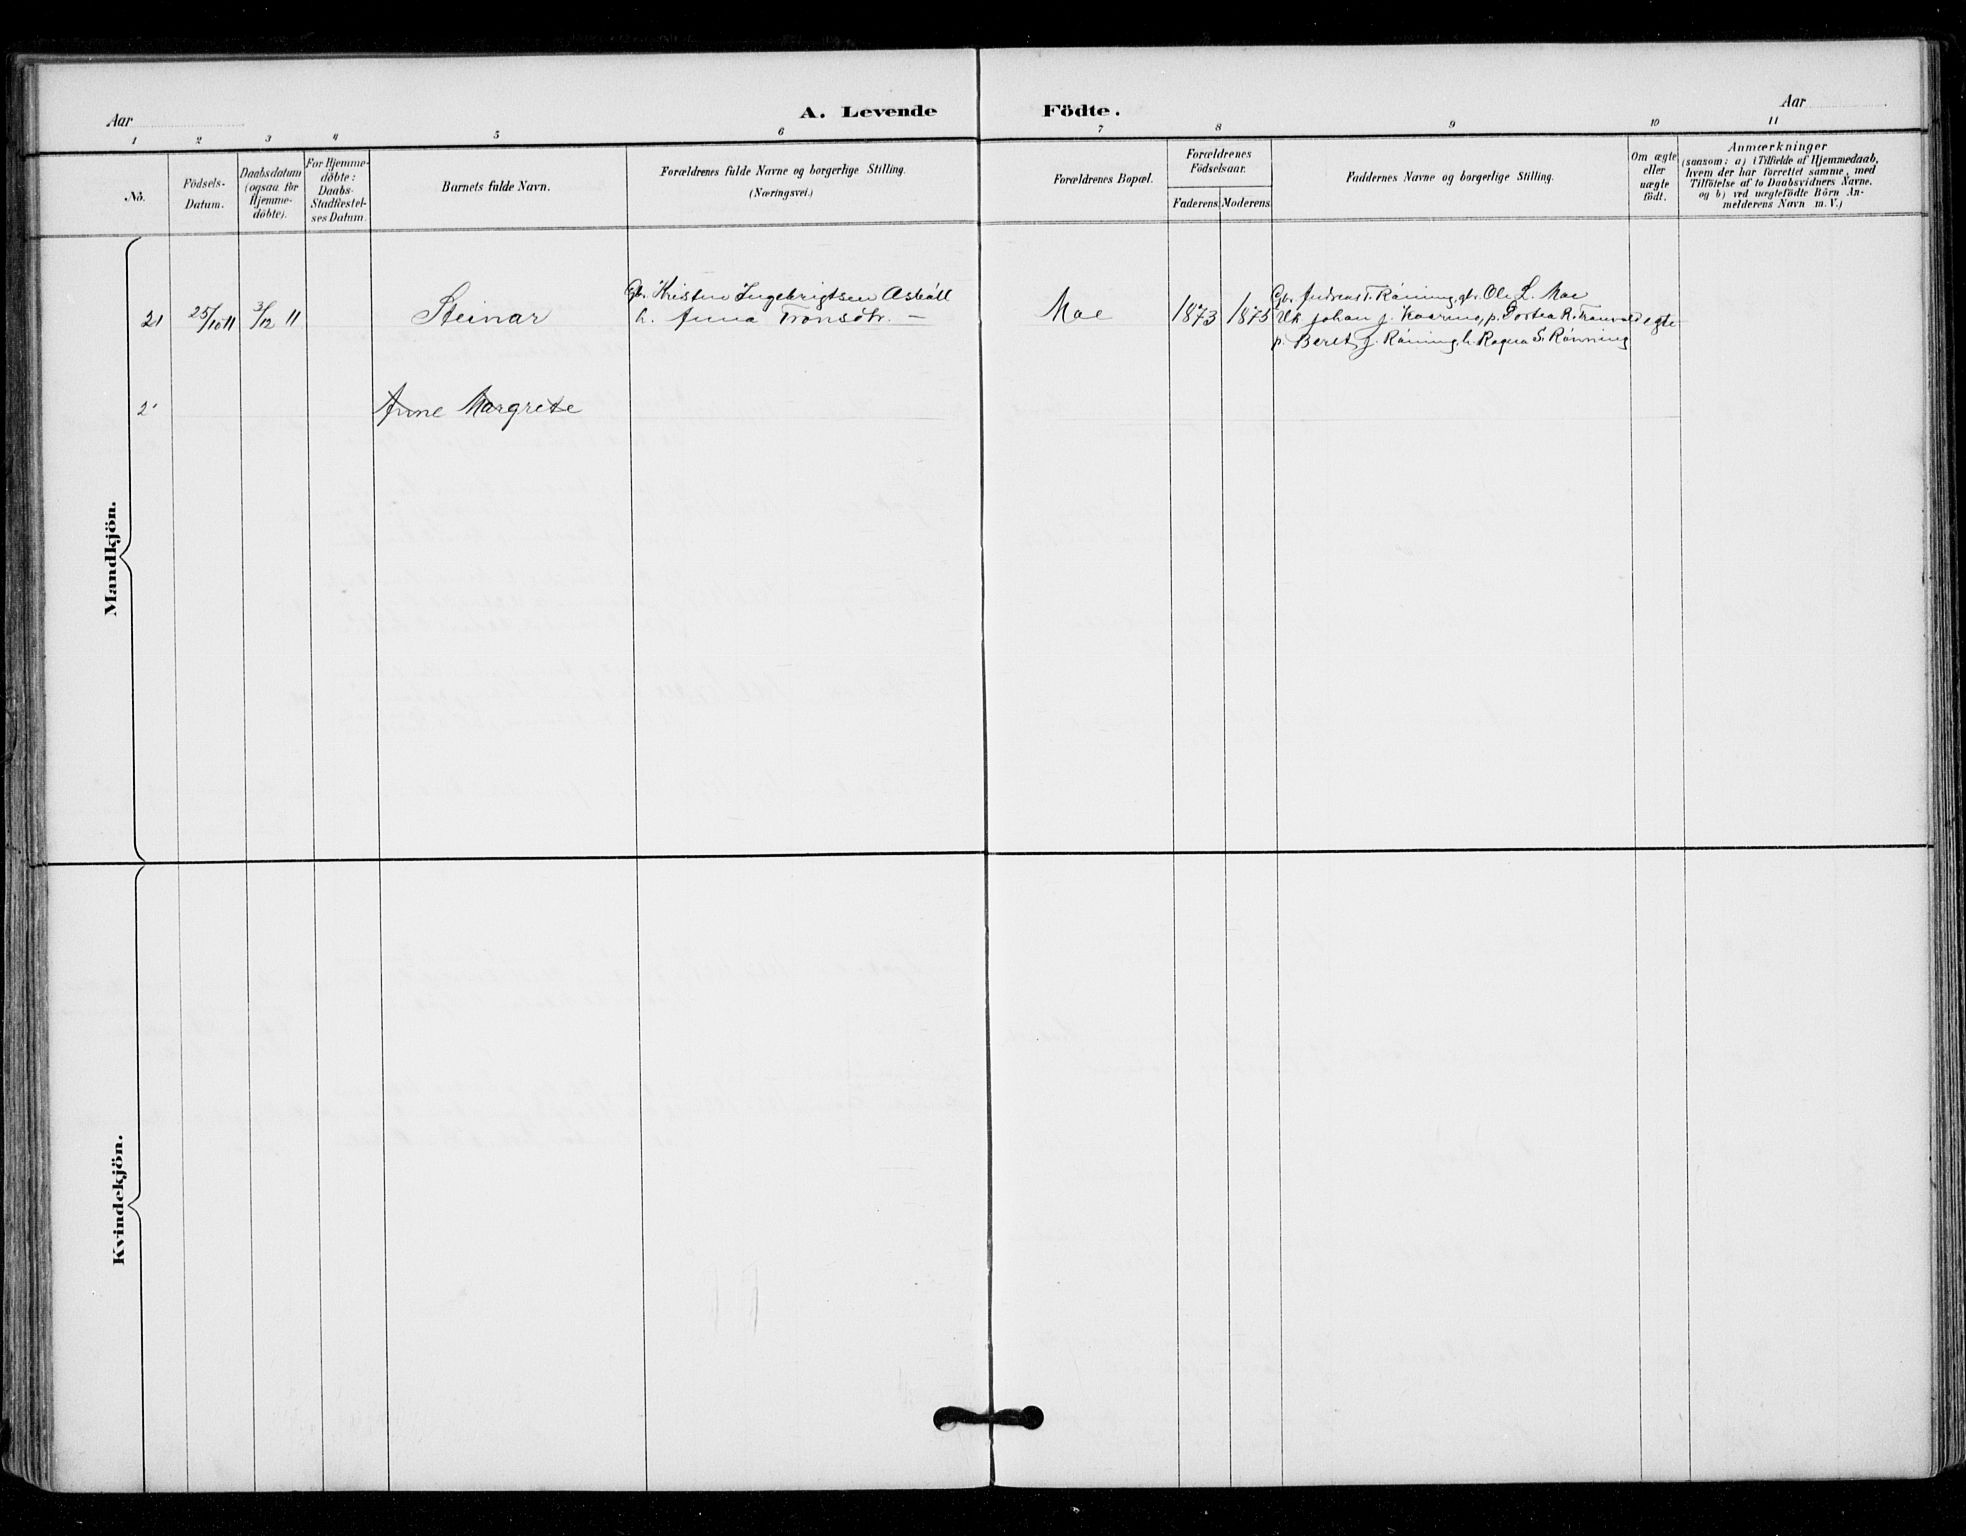 Aar
A. Levende Födte.
Aar
1 2 3 4 5 6 7 8 9 10 11
No.
Födsels-Datum.
Daabsdatum (ogsaa for Hjemme-döbte).
For Hjemme-döbte: Daabs-Stadfæstel-ses Datum.
Barnets fulde Navn.
Forældrenes fulde Navne og borgerlige Stilling.
(Næringsvei.)
Forældrenes Bopæl.
Forældrenes Födselsaar.
Faderens. Moderens.
Faddernes Navne og borgerlige Stilling.
Om ægte eller uægte födt.
Anmærkninger
(saasom: a) i Tilfælde af Hjemmedaab,
hvem der har forrettet samme, med
Tilföielse af to Daabsvidners Navne,
og b) ved uægtefödte Börn An-
melderens Navn m. V.)
Mandkjön.
21 25/10 11 3/12 11 Steinar
Gb. Kristen Ingebrigtsen Asbøll
h. Anna Tronsdtr. —
Moe 1873 1875
Gbr. Andreas T. Røning, gb. Ole L. Moe
Uk Johan J. p. Dortea R. egte
p. Beret J. Røning, h. Ragna S. Rønning
2 Anne Margrete
Kvindekjön.